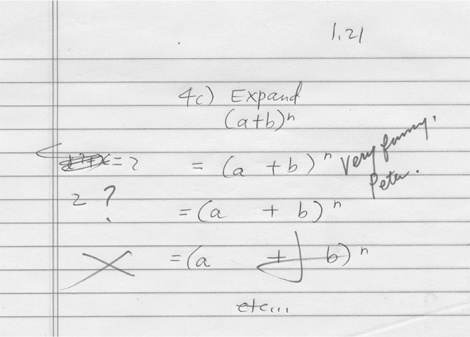 1,21
4c) Expand
(a+b)ⁿ
=2 = (a +b)ⁿ Very funny,
Peter.
2 ? = (a + b)ⁿ
= (a + b)ⁿ
etc...